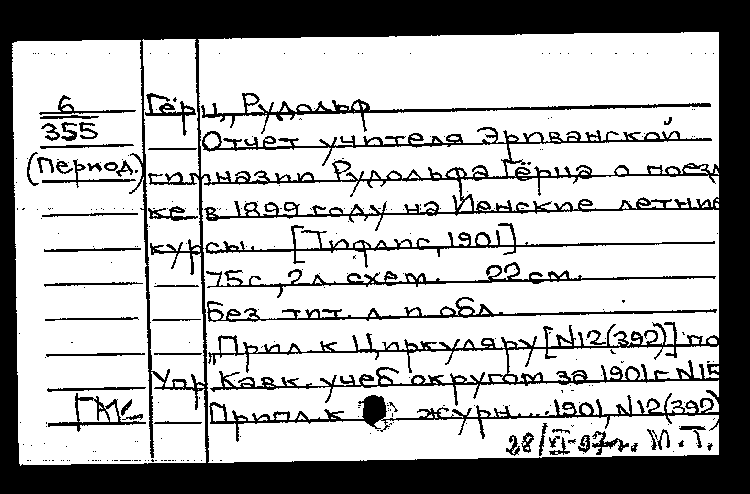 6 Гёрц, Рудольф
355 Отчет учителя Эриванской
(Период.) гимназии Рудольфа Гёрца о поезд
ке в 1899 году на Иенские летние
курсы. [Тифлис, 1901].
75 с., 2 л. схем. 22 см.
Без тит. л. и обл.
"Прил. к Циркуляру [N12(392)] по
Упр. Кавк. учеб округом за 1901 г. N15
Прил. к журн.... 1901, N12(392)
28/VI-97г. М. Т.